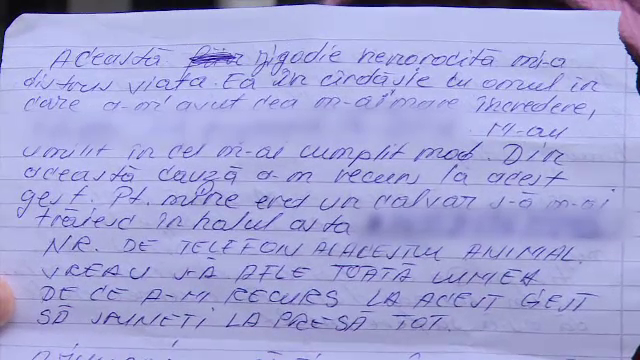 Această jigodie nenorocită mi-a
distrus viața. Ea în cîrdășie cu omul în
care a-m avut cea m-ai mare încredere,
M-au
umilit în cel m-ai cumplit mod. Din
această cauză a-m recurs la acest
gest. Pt. mine era un calvar s-ă m-ai
trăiesc în halul asta
NR. DE TELEFON AL ACESTUI ANIMAL.
VREAU S-Ă AFLE TOATĂ LUMEA
DE CE A-M RECURS LA ACEST GEST
SĂ SPUNEȚI LA PRESĂ TOT.